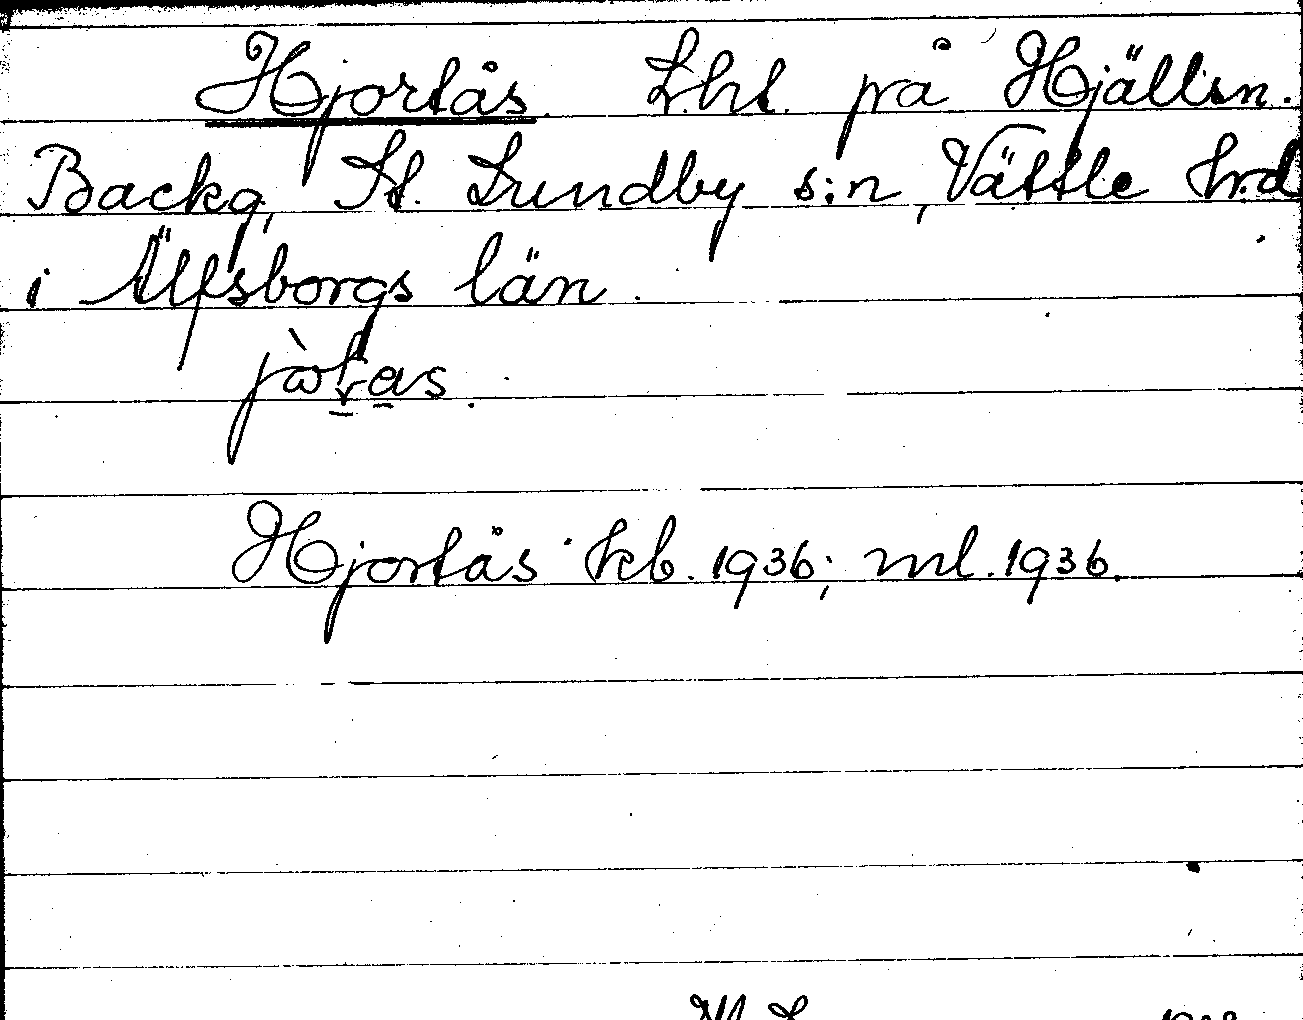 Hjortås. L.ht. på Hjällsn.
Backg, St. Lundby s:n, Vättle hrd
i Älfsborgs län.
Hjortås kb. 1936; ml. 1936.